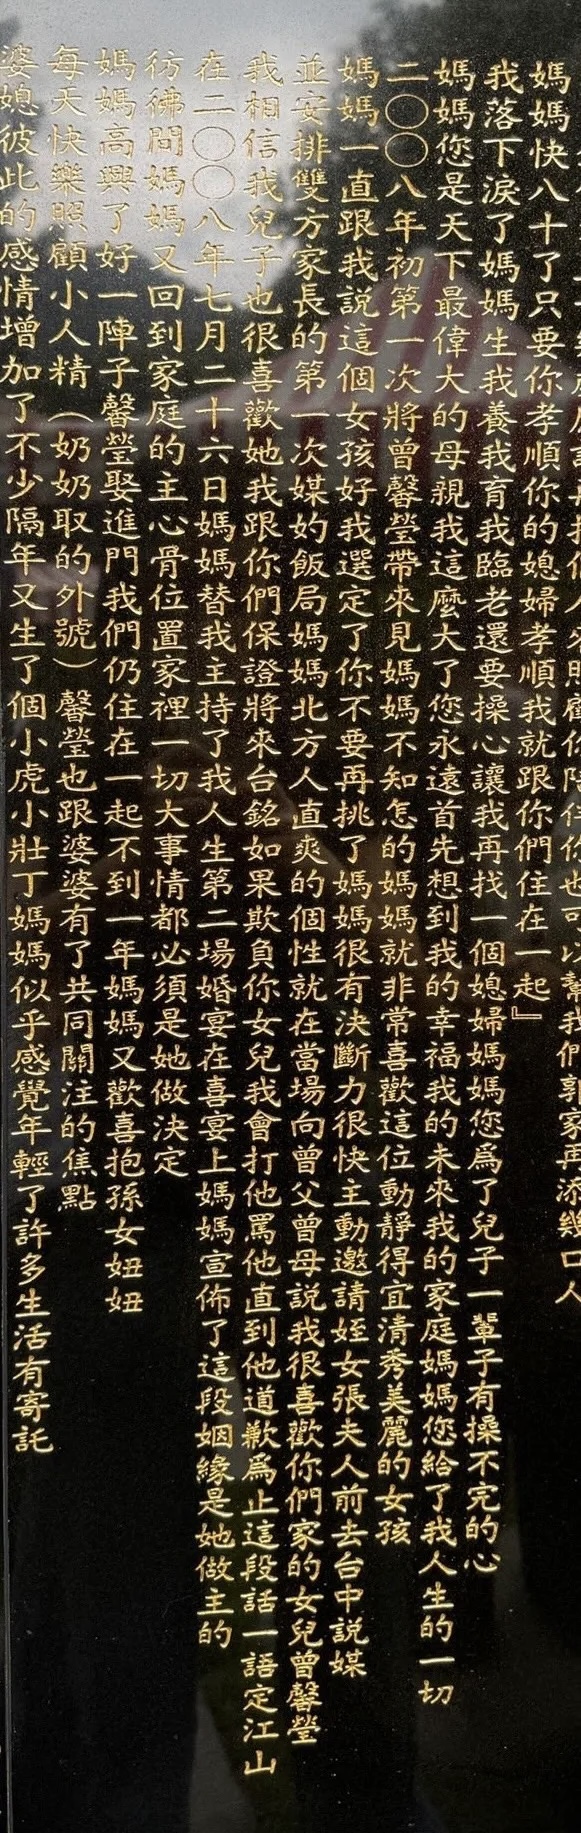 媽媽快八十了只要你孝順你的媳婦孝順我就跟你們住在一起』
我落下淚了媽媽生我養我育我臨老還要操心讓我再找一個媳婦媽媽您為了兒子一輩子有操不完的心
媽媽您是天下最偉大的母親我這麼大了您永遠首先想到我的幸福我的未來我的家庭媽媽您給了我人生的一切
二〇〇八年初第一次將曾馨瑩帶來見媽媽不知怎的媽媽就非常喜歡這位動靜得宜清秀美麗的女孩
媽媽一直跟我說這個女孩好我選定了你不要再挑了媽媽很有決斷力很快主動邀請姪女張夫人前去台中説媒
並安排雙方家長的第一次媒妁飯局媽媽北方人直爽的個性就在當場向曾父曾母説我很喜歡你們家的女兒曾馨瑩
我相信我兒子也很喜歡她我跟你們保證將來台銘如果欺負你女兒我會打他罵他直到他道歉為止這段話一語定江山
在二〇〇八年七月二十六日媽媽替我主持了我人生第二場婚宴在喜宴上媽媽宣佈了這段姻緣是她做主的
彷彿間媽媽又回到家庭的主心骨位置家裡一切大事情都必須是她做決定
媽媽高興了好一陣子馨瑩娶進門我們仍住在一起不到一年媽媽又歡喜抱孫女妞妞
每天快樂照顧小人精（奶奶取的外號）馨瑩也跟婆婆有了共同關注的焦點
婆媳彼此的感情增加了不少隔年又生了個小虎小壯丁媽媽似乎感覺年輕了許多生活有寄託